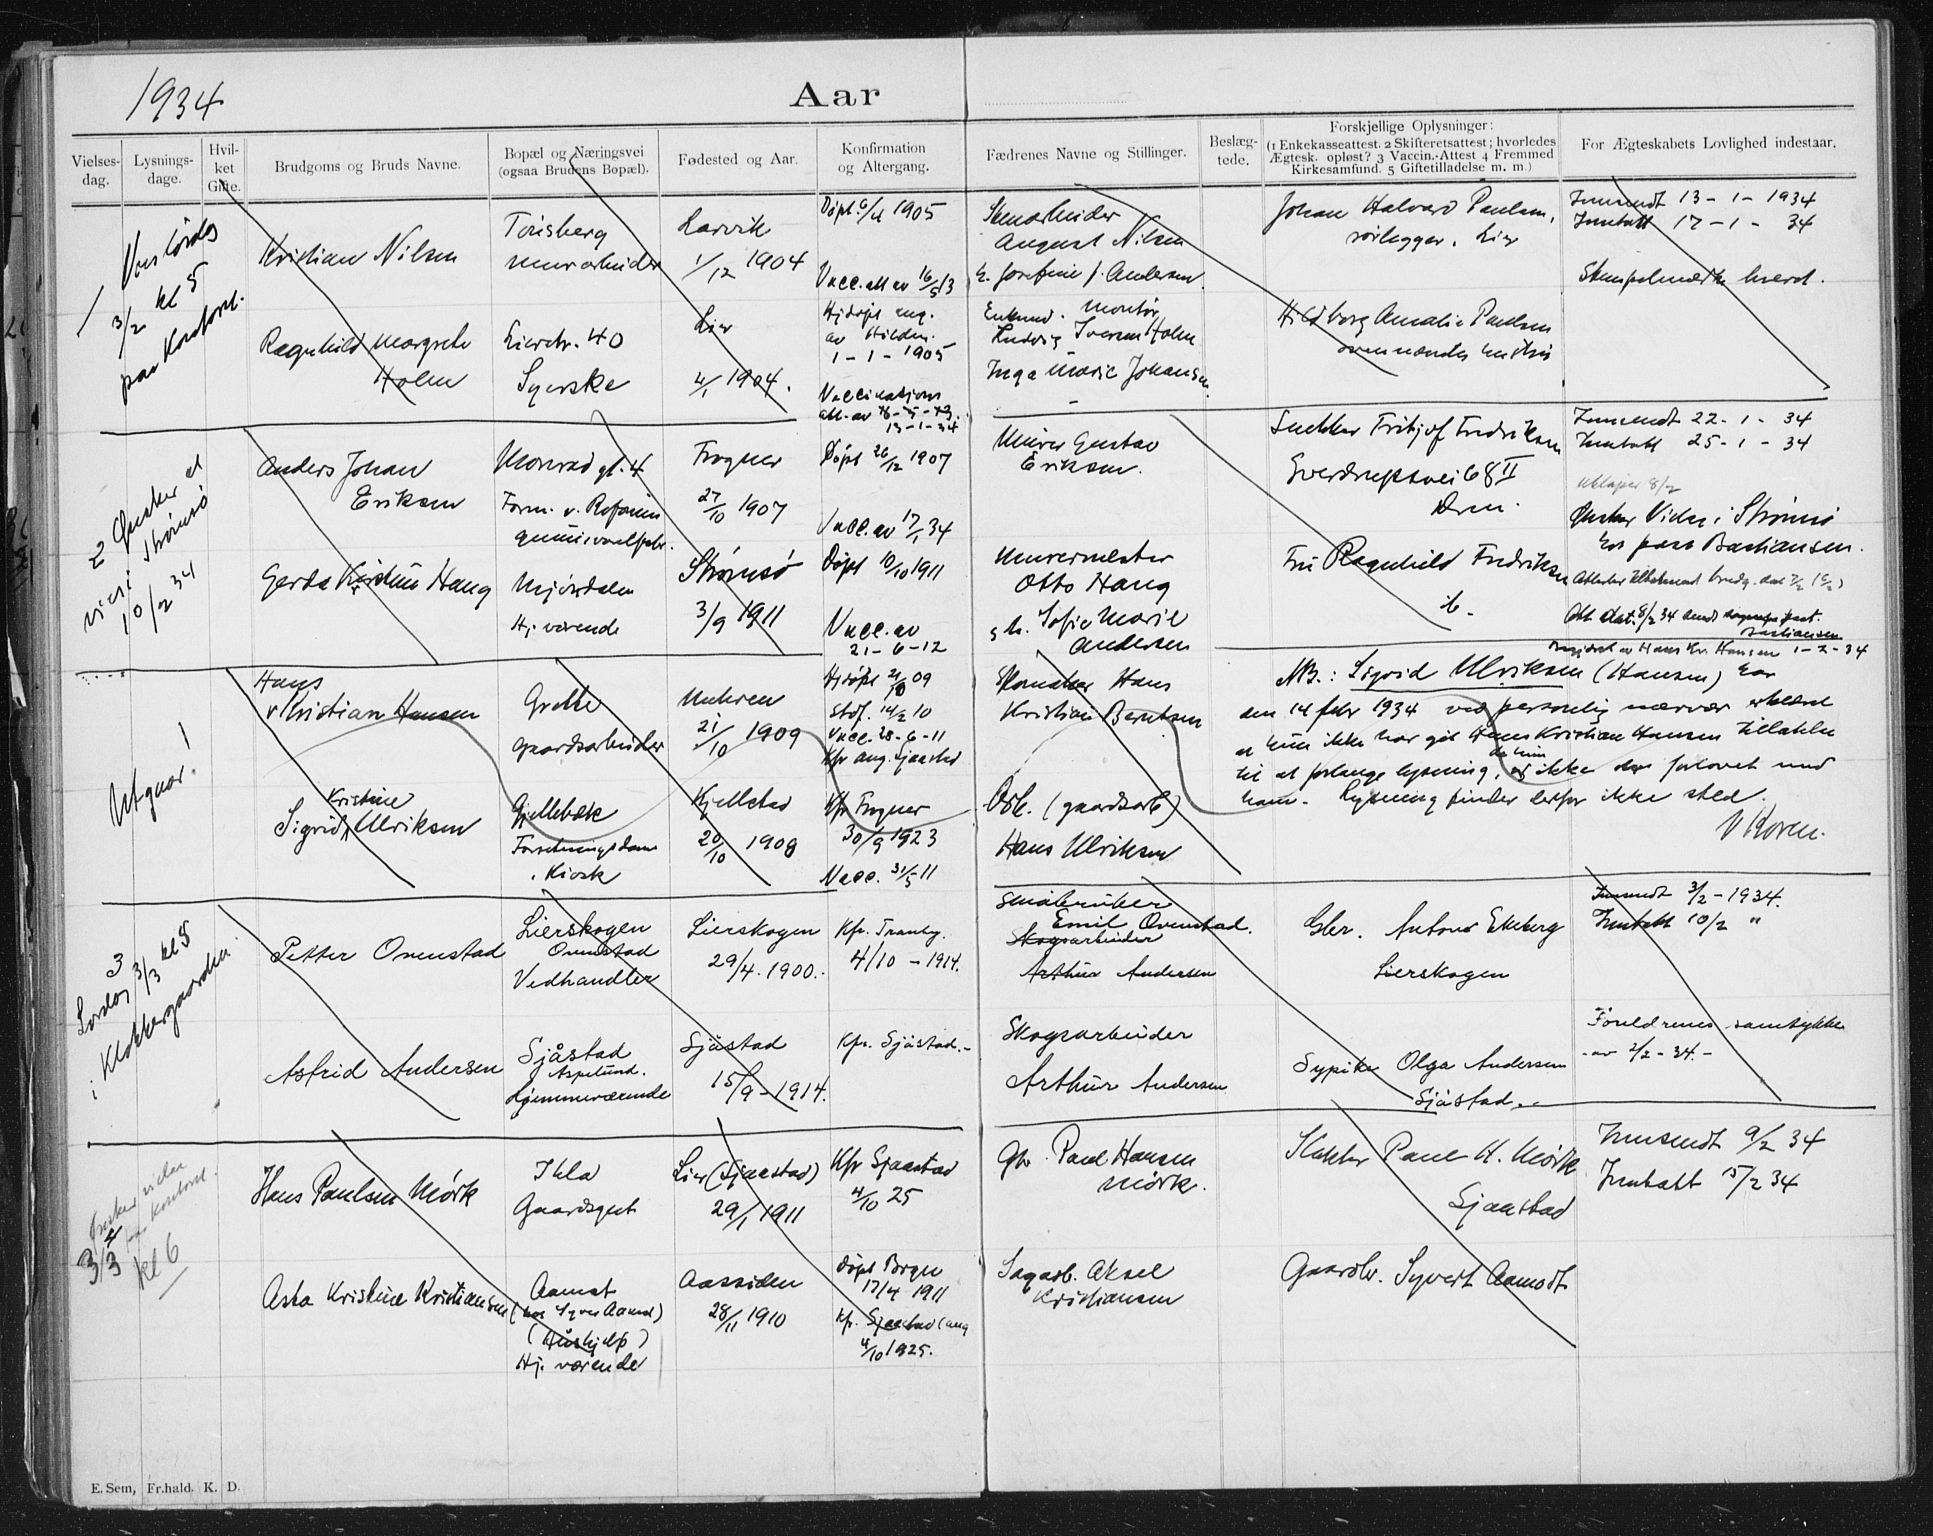 1934
Aar
Vielses-
dag.
Lysnings-
dage.
Hvil-
ket
Gifte.
Brudgoms og Bruds Navne.
Bopæl og Næringsvei
(ogsaa Brudens Bopæl).
Fødested og Aar.
Konfirmation
og Altergang.
Fædrenes Navne og Stillinger.
Beslæg-
tede.
Forskjellige Oplysninger:
(1 Enkekasseattest. 2 Skifteretsattest; hvorledes
Ægtesk. opløst? 3 Vaccin.-Attest 4 Fremmed
Kirkesamfund. 5 Giftetilladelse m. m.)
For Ægteskabets Lovlighed indestaar.
1
3/2 kl 5
paa Kontoret.
Kristian Nilsen
murarbeider
Larvik
1/12 1904
Døpt 6/4 1905
Vacc. att av 16/5 13
August Nilsen
h. Josefine f. Andersen
Johan Halvard Paulsen,
rørlegger, Lier
Innsendt 13-1-1934
Inntatt 17-1-34
Stempelmerke hvert.
Ragnhild Margrete
Holm
Lierstr. 40
Syerske
Lier
4/1 1904.
Hjdøpt
1-1-1905
Vaccinations
att. av
13-1-34
montør
Ludvig Iversen Holm
Inga Marie Johansen
Hildborg Amalie Paulsen
ovennevntes hustru
2 Ønsker at
vies i Strømsø
10/2 34
Anders Johan
Eriksen
Monrad gt. 4
Form. v.
Frogner
27/10 1907
Døpt 26/12 1907
Vacc. av 17/1 34
Murer Gustav
Eriksen.
Snekker Fritjof Fredriksen
Sverdrupsvei 68 II
Drm.
Innsendt 22-1-34
Inntatt 25-1-34
Ønsker Vielse i Strømsø
hos past Bastiansen.
Gerda Kristine Haug
Mjøndalen
Hj. værende
Strømsø
3/9 1911
Døpt 10/10 1911
Vacc. av
21-6-12
Murermester
Otto Haug
Sofie Marie
Andersen
Fru Ragnhild Fredriksen
ib.
Att. dat. 8/2 34 sendt past.
Bastiansen
av Hans Kr. Hansen 1-2-34
Utgaar!
Hans
Kristian Hansen
Grette
gaardsarbeider
21/10 1909
Hjdøpt 21/10 09
Stdf. 14/2 10
Vacc. 28-6-11
Kfr ang. Sjaastad
Skomaker Hans
Kristian Berntsen
NB.: Sigrid Ulriksen (Hansen) har
den 14 febr 1934 ved personlig nærvær erklært
at hun ikke har git Hans Kristian Hansen tillatelse
til at forlange lysning, da hun ikke er forlovet med
ham. Lysning finder derfor ikke sted.
V Koren.
Kristine
Sigrid Ulriksen
Gjellebæk
Forretningsdame
i Kiosk
Kjellstad
20/10 1908
Kfr Frogner
30/9 1923
Vacc. 31/5 11
Arb. (gaardsarb)
Hans Ulriksen
3
Lørdag 3/3 kl 5
i Klokkergaarden
Petter Ovenstad
Lierskogen
Ovenstad
Vedhandler
Lierskogen
29/4. 1900.
Kfr. Tranby.
4/10 - 1914.
Småbruker
Emil Ovenstad.
Skogsarbeider
Arthur Andersen
Gbr. Anton Ekeberg
Lierskogen
Innsendt 3/2-1934.
Inntatt 10/2 "
Astrid Andersen
Sjåstad
Aspelund.
Hjemmeværende
Sjåstad
15/9-1914.
Kfr. Sjåstad.-
Skogsarbeider
Arthur Andersen
Sypike Olga Andersen
Sjåstad.-
Foreldrenes samtykke
av 2/2-34.-
4
Ønsker vielse
paa kontoret.
3/3 kl 6
Hans Paulsen Mørk
Ikla
Gaardsgut
Lier (Sjaastad)
29/1 1911
Kfr Sjaastad
4/10 25
Gbr. Paul Hansen
Mørk.
Paul H. Mørk
Sjaastad
Innsendt 9/2 34
Inntatt 15/2 34
Asta Kristine Kristiansen
Aamot
(hos Syver Aamot)
(Hushjelp)
Hj. værende
Aassiden
28/11 1910
Døpt
17/4 1911
Kfr. Sjaastad
4/10 1925.
Sagarb. Aksel
Kristiansen
Gaardbr. Syvert Aamodt
E. Sem, Fr.hald. K. D.